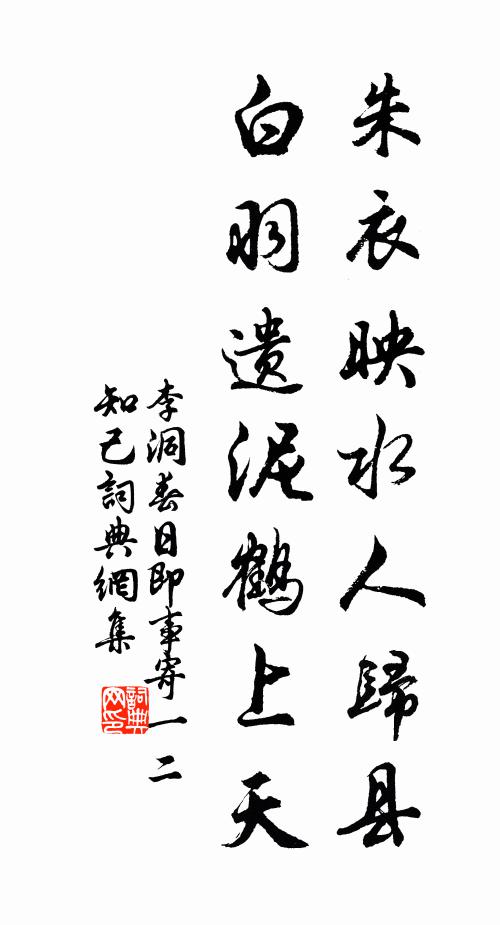 朱衣映水人歸县
白羽遗泥鶴上天
李洞春日即事寄一二
知己詞典網集
詞典网印